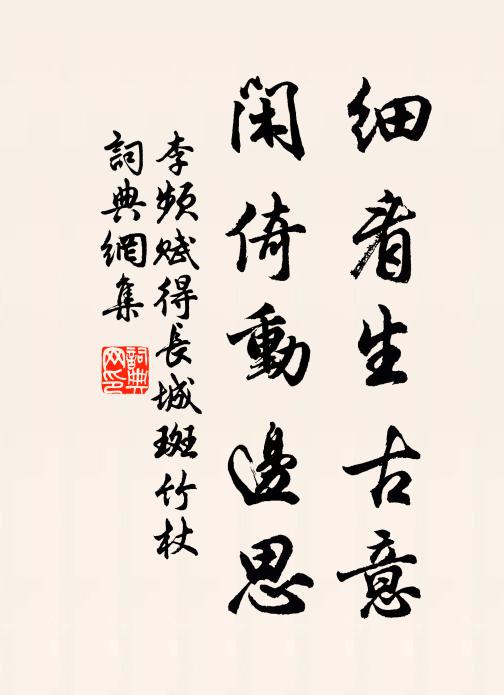 细看生古意
闲倚動邊思
李频赋得長城斑竹杖
詞典網集
詞典网印